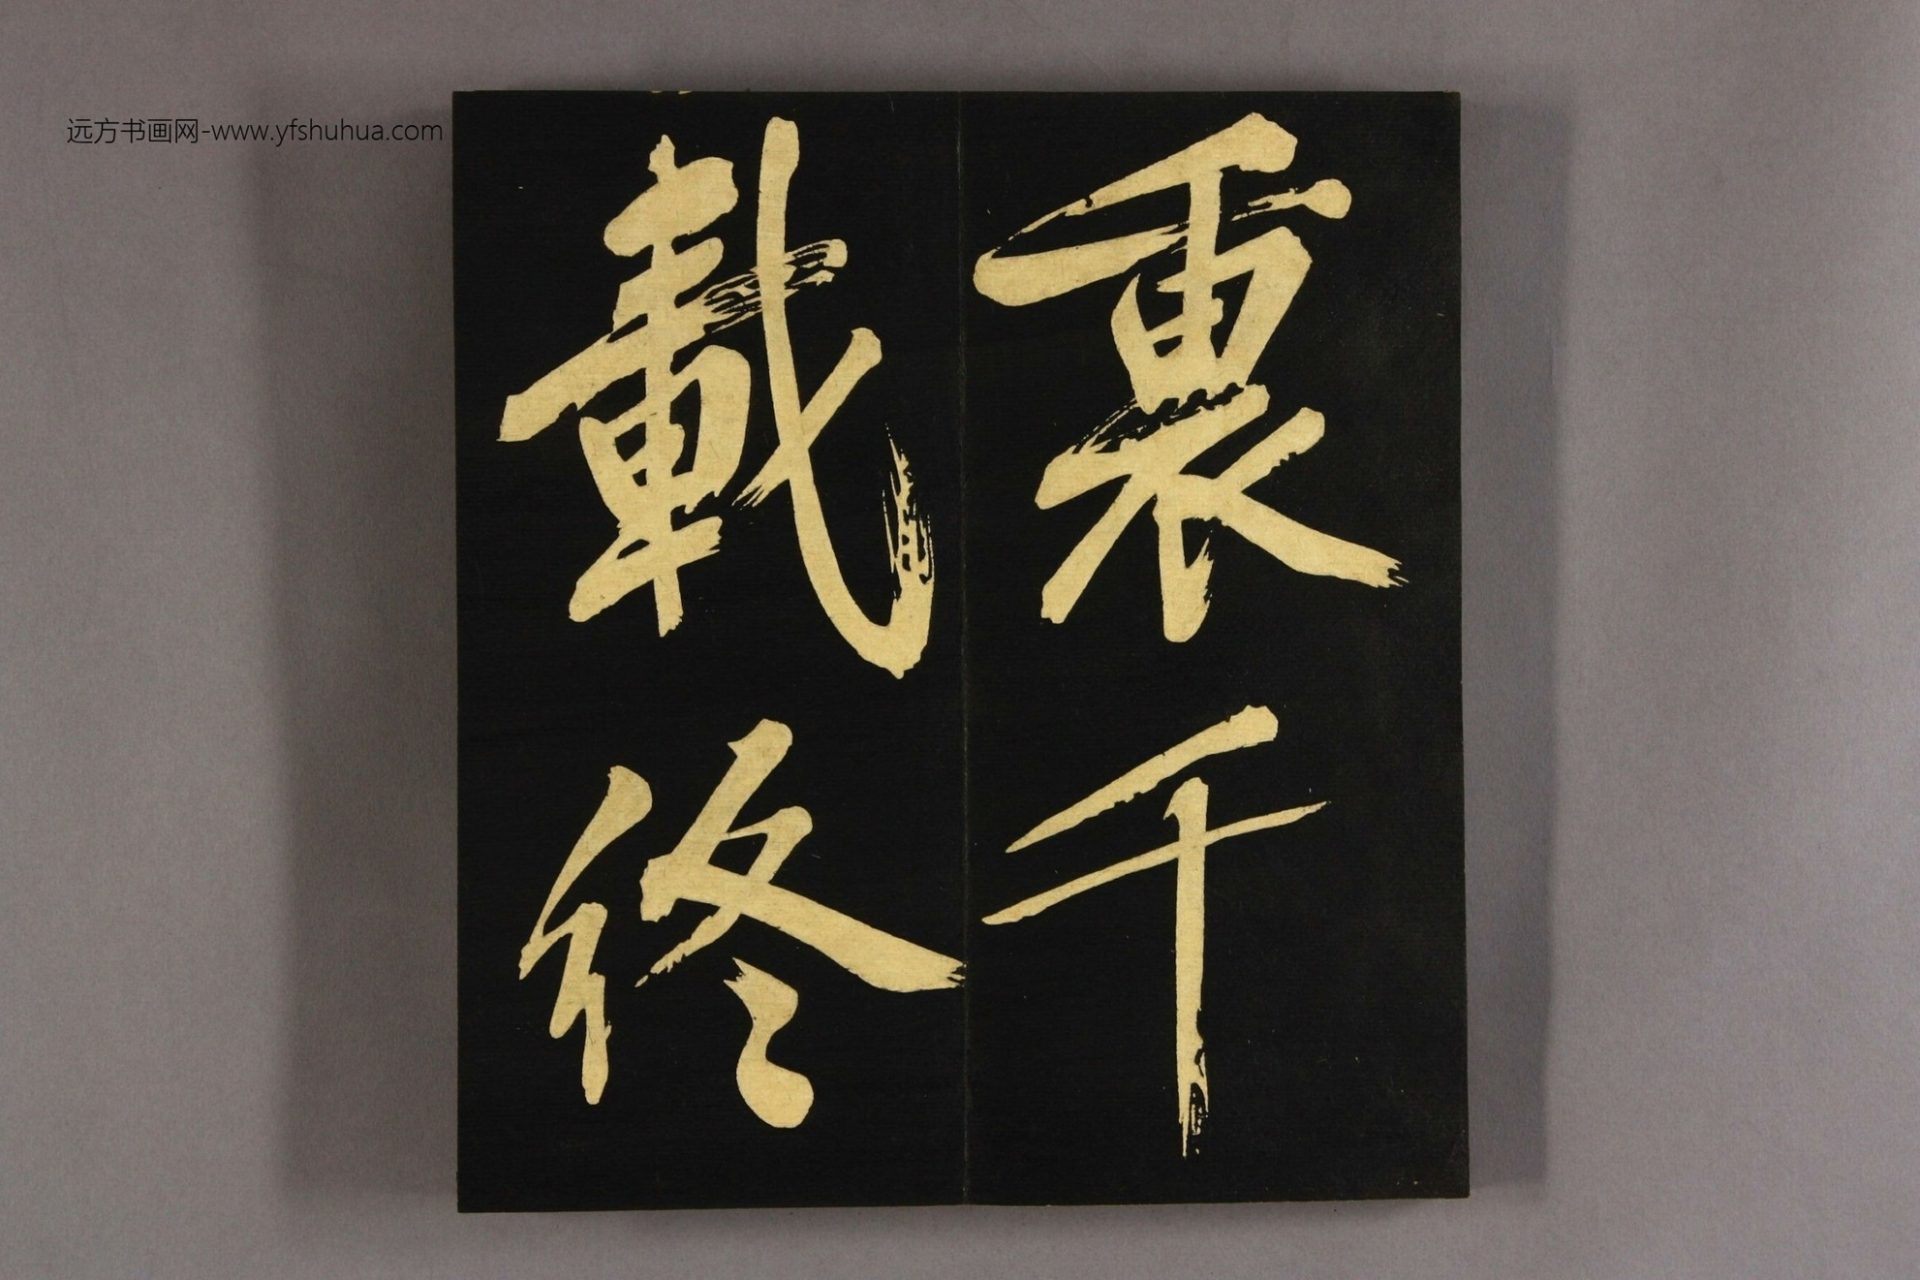 裏千
載終
远方书画网-www.yfshuhua.com